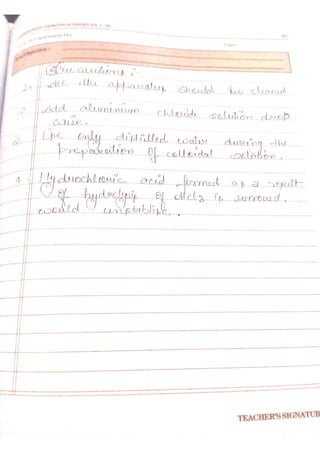 Date
Precautions :
1. All the apparatus should be cleaned
2. Add aluminium chloride solution drop
wise.
3. Use only distilled water during the
preparation of colloidal solution.
4. Hydrochloric acid formed as a result
of hydrolysis of AlCl3 is
would unstablise.
TEACHER'S SIGNATUR